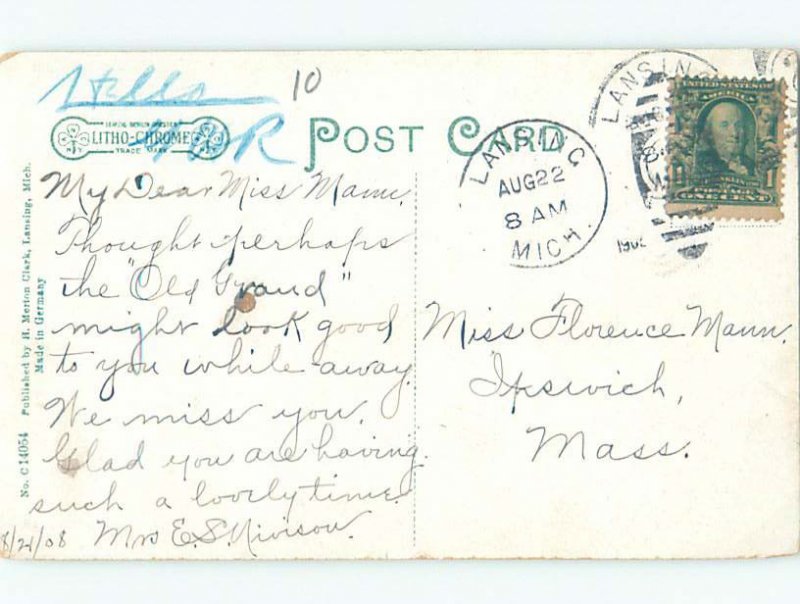 10
LEIPZIG BERLIN DRESDEN
LITHO-CHROME
TRADE MARK
POST CARD
LANSING
AUG 22
8 AM
MICH.
LANSING
UNITED STATES OF
1 1
ONE CENT
No. C 14054 Published by H. Merton Clark, Lansing, Mich.
Made in Germany
My Dear Miss Mann.
Thought perhaps
the "Old Grand"
might look good
to you while away.
We miss you.
Glad you are having
such a lovely time.
8/21/08 Mrs E.S. Nivison.
Miss Florence Mann.
Ipswich,
Mass.